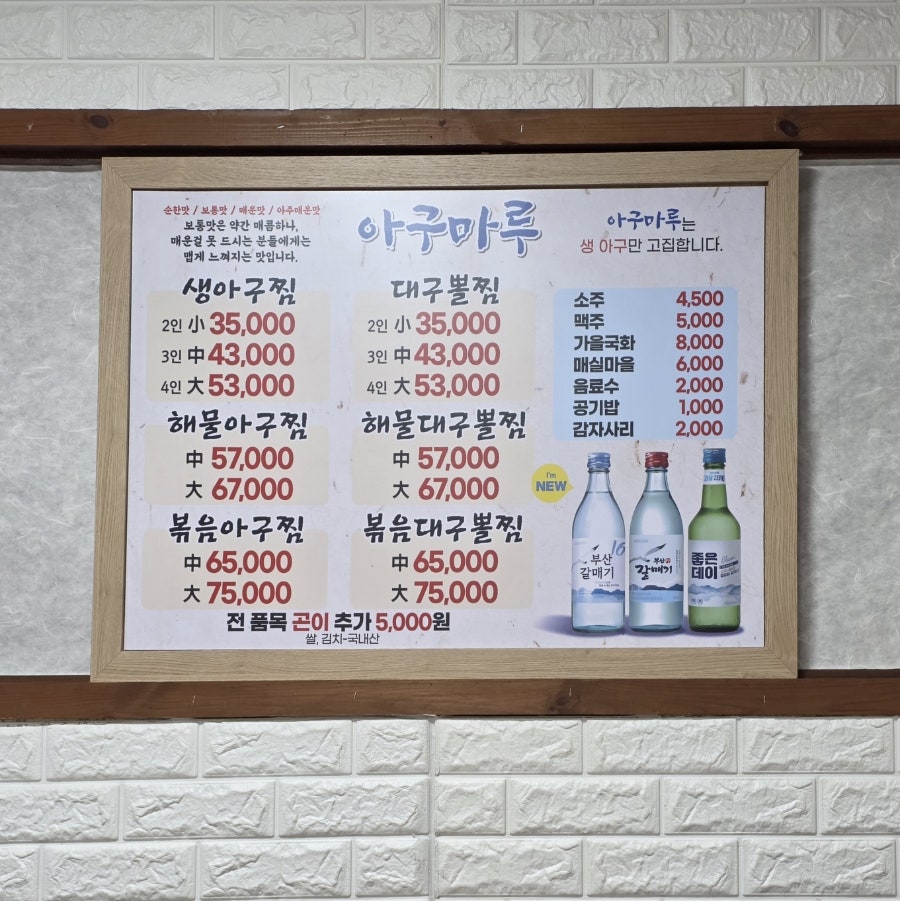 순한맛 / 보통맛 / 매운맛 / 아주매운맛
보통맛은 약간 매콤하나,
매운걸 못 드시는 분들에게는
맵게 느껴지는 맛입니다.
아구마루
아구마루는
생 아구만 고집합니다.
생아구찜
2인 小 35,000
3인 中 43,000
4인 大 53,000
해물아구찜
中 57,000
大 67,000
볶음아구찜
中 65,000
大 75,000
대구뽈찜
2인 小 35,000
3인 中 43,000
4인 大 53,000
해물대구뽈찜
中 57,000
大 67,000
볶음대구뽈찜
中 65,000
大 75,000
전 품목 곤이 추가 5,000원
쌀, 김치-국내산
소주 4,500
맥주 5,000
가을국화 8,000
매실마을 6,000
음료수 2,000
공기밥 1,000
감자사리 2,000
I'm
NEW
16
부산
갈매기
부산
갈매기
좋은
데이